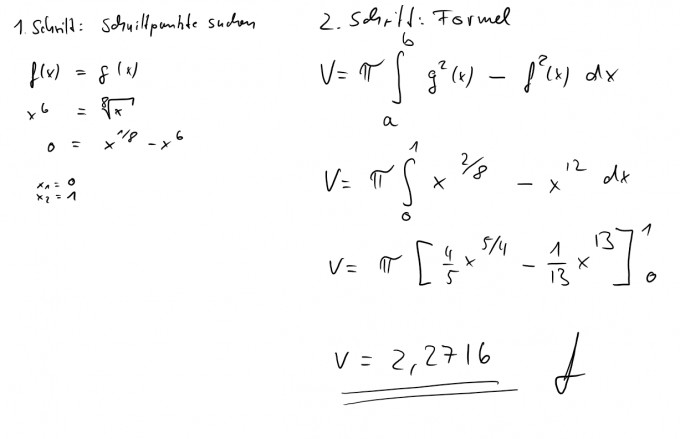 1. Schritt: Schnittpunkte suchen
f(x) = g(x)
x^6 = ⁸√x
0 = x^1/8 - x^6
x₁ = 0
x₂ = 1
2. Schritt: Formel
V = π ∫_a^b g²(x) - f²(x) dx
V = π ∫_0^1 x^2/8 - x^12 dx
V = π [4/5 x^5/4 - 1/13 x^13]_0^1
V = 2,2716